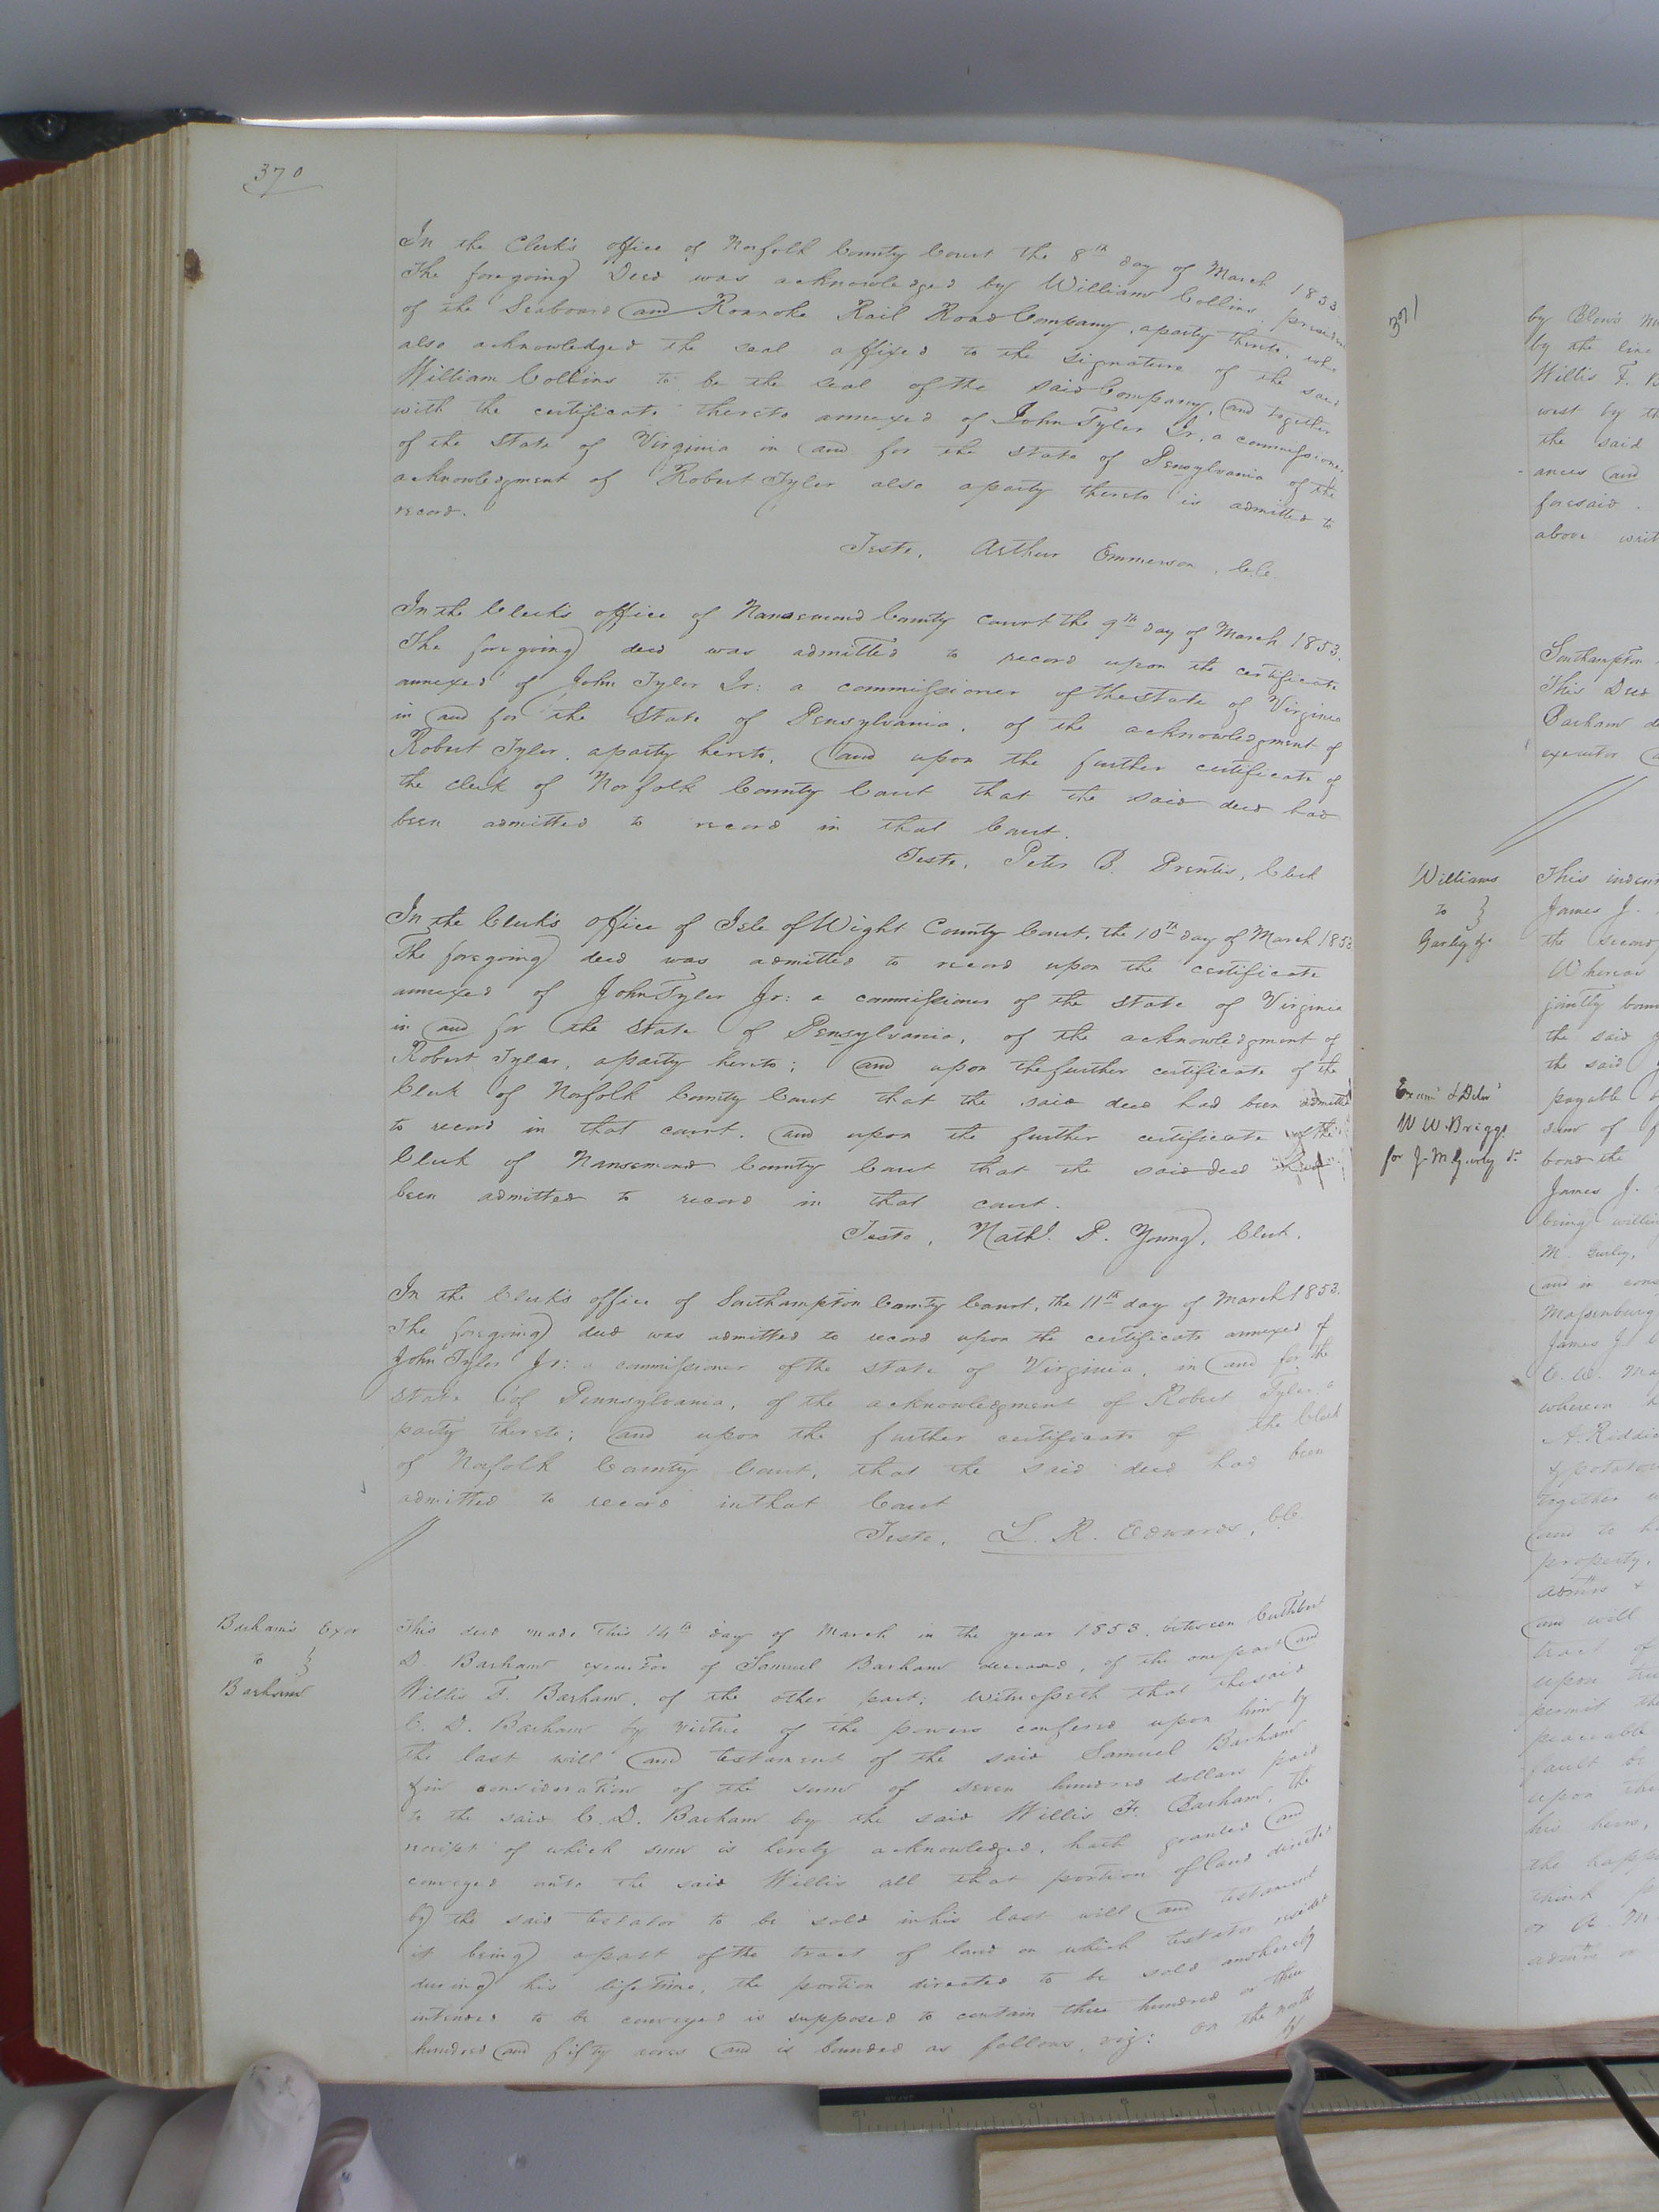 370
In the Clerk's office of Norfolk County Court the 8th day of March 1853.
The foregoing Deed was acknowledged by William Collins, president
of the Seaboard and Roanoke Rail Road Company, a party thereto, who
also acknowledged the seal affixed to the signature of the said
William Collins to be the seal of the said Company, and together
with the certificate thereto annexed of John Tyler Jr. a commissioner
of the State of Virginia in and for the State of Pensylvania of the
acknowledgment of Robert Tyler also a party thereto is admitted to
record.
Teste, Arthur Emmerson, C.C.
In the Clerk's office of Nansemond County Court the 9th day of March 1853.
The foregoing deed was admitted to record upon the certificate
annexed of John Tyler Jr: a commissioner of the State of Virginia
in and for the State of Pensylvania, of the acknowledgment of
Robert Tyler, a party hereto, and upon the further certificate of
the clerk of Norfolk County Court that the said deed had
been admitted to record in that Court.
Teste, Peter B. Prentis, Clerk
In the Clerk's office of Isle of Wight County Court, the 10th day of March 1853
The foregoing deed was admitted to record upon the certificate
annexed of John Tyler Jr: a commissioner of the State of Virginia
in and for the State of Pensylvania, of the acknowledgment of
Robert Tyler, a party hereto; and upon the further certificate of the
Clerk of Norfolk County Court that the said deed had been admitted
to record in that court. and upon the further certificate of the
Clerk of Nansemond County Court that the said deed had
been admitted to record in that court.
Teste, Nathl. P. Young, Clerk.
In the Clerk's office of Southampton County Court, the 11th day of March 1853.
The foregoing deed was admitted to record upon the certificate annexed of
John Tyler Jr: a commissioner of the State of Virginia, in and for the
State of Pennsylvania, of the acknowledgment of Robert Tyler, a
party thereto; and upon the further certificate of the Clerk
of Norfolk County Court, that the said deed had been
admitted to record in that Court
Teste, L. R. Edwards, C.C.
Barham's Exor
to }
Barham
This deed made this 14th day of March in the year 1853, between Cuthbert
D. Barham executor of Samuel Barham deceased, of the one part and
Willis F. Barham, of the other part; witnesseth that the said
C. D. Barham by virtue of the powers confered upon him by
the last will and testament of the said Samuel Barham
& in consideration of the sum of seven hundred dollars paid
to the said C. D. Barham by the said Willis F. Barham, the
receipt of which sum is hereby acknowledged, hath granted and
conveyed unto the said Willis all that portion of land directed
by the said testator to be sold in his last will and testament
it being a part of the tract of land on which testator resided
during his life time, the portion directed to be sold and hereby
intended to be conveyed is supposed to contain three hundred or three
hundred and fifty acres and is bounded as follows, viz: on the north
by
371
by Blow's
by the line
Willis F. B
west by th
the said
ances and
foresaid.
above writ
Southampton
This Deed
Barham de
executor
Williams
to }
Gurley &c
This inden
James J.
the second
Whereas
jointly boun
the said
the said
payable
sum of
bond the
James J.
being willin
M. Gurley,
and in cons
Massenburg
James J.
C. W. Ma
wherein
A. Riddic
& potatoes
together
and to h
property,
admrs &
and will
tract of
upon tru
permit the
peaceable
fault be
upon the
his heirs,
the happe
think p
or
admrs or
Exam'd & Del'd
W W. Briggs
for J. M Gurley